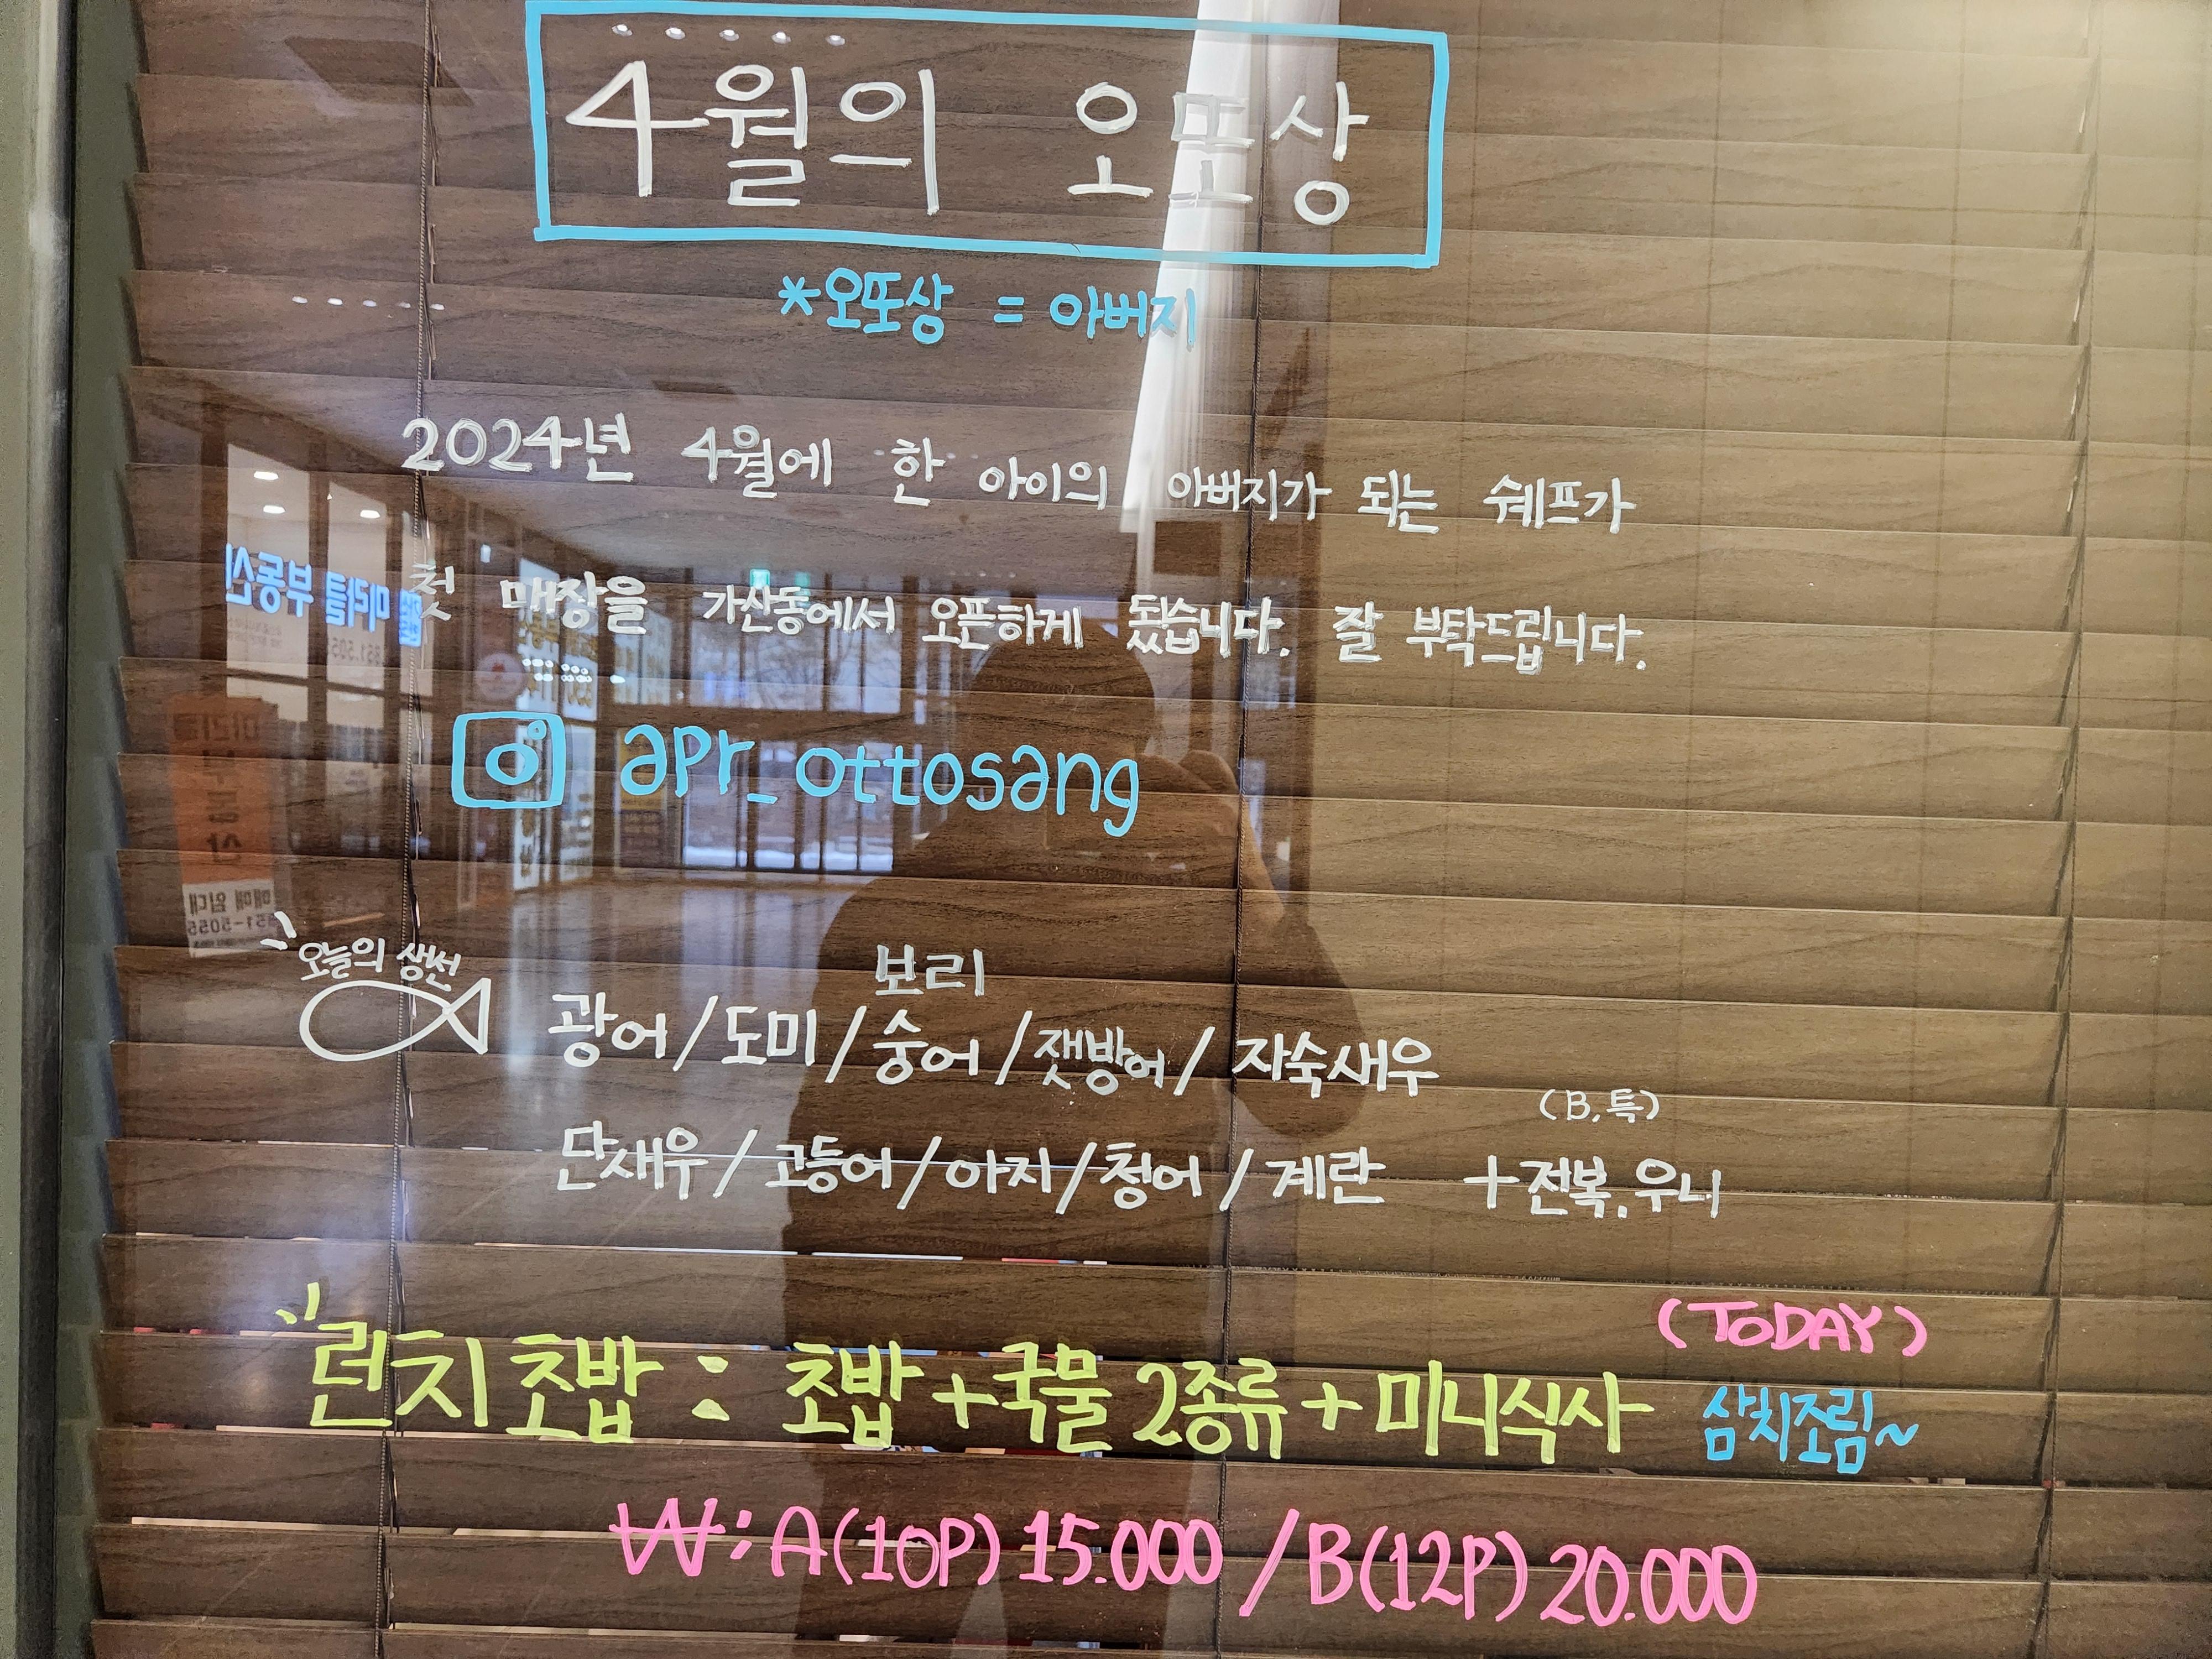 4월의 오또상
*오또상 = 아버지
2024년 4월에 한 아이의 아버지가 되는 쉐프가
첫 매장을 가산동에서 오픈하게 됬습니다. 잘 부탁드립니다.
apr_ottosang
오늘의 생선
보리
광어/도미/숭어/잿방어/자숙새우
(B.특)
단새우/고등어/아지/청어/계란 +전복.우니
(TODAY)
런치초밥 : 초밥+국물2종류+미니식사 삼치조림~
₩: A(10P) 15.000 / B(12P) 20.000
미라클 부동산
매매 임대
851-5055